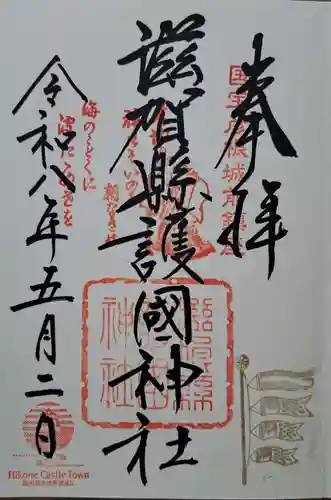 奉拝
国宝彦根城前鎮座
滋賀縣護國神社
令和八年五月二日
滋賀縣護國神社
Hikone Castle Town